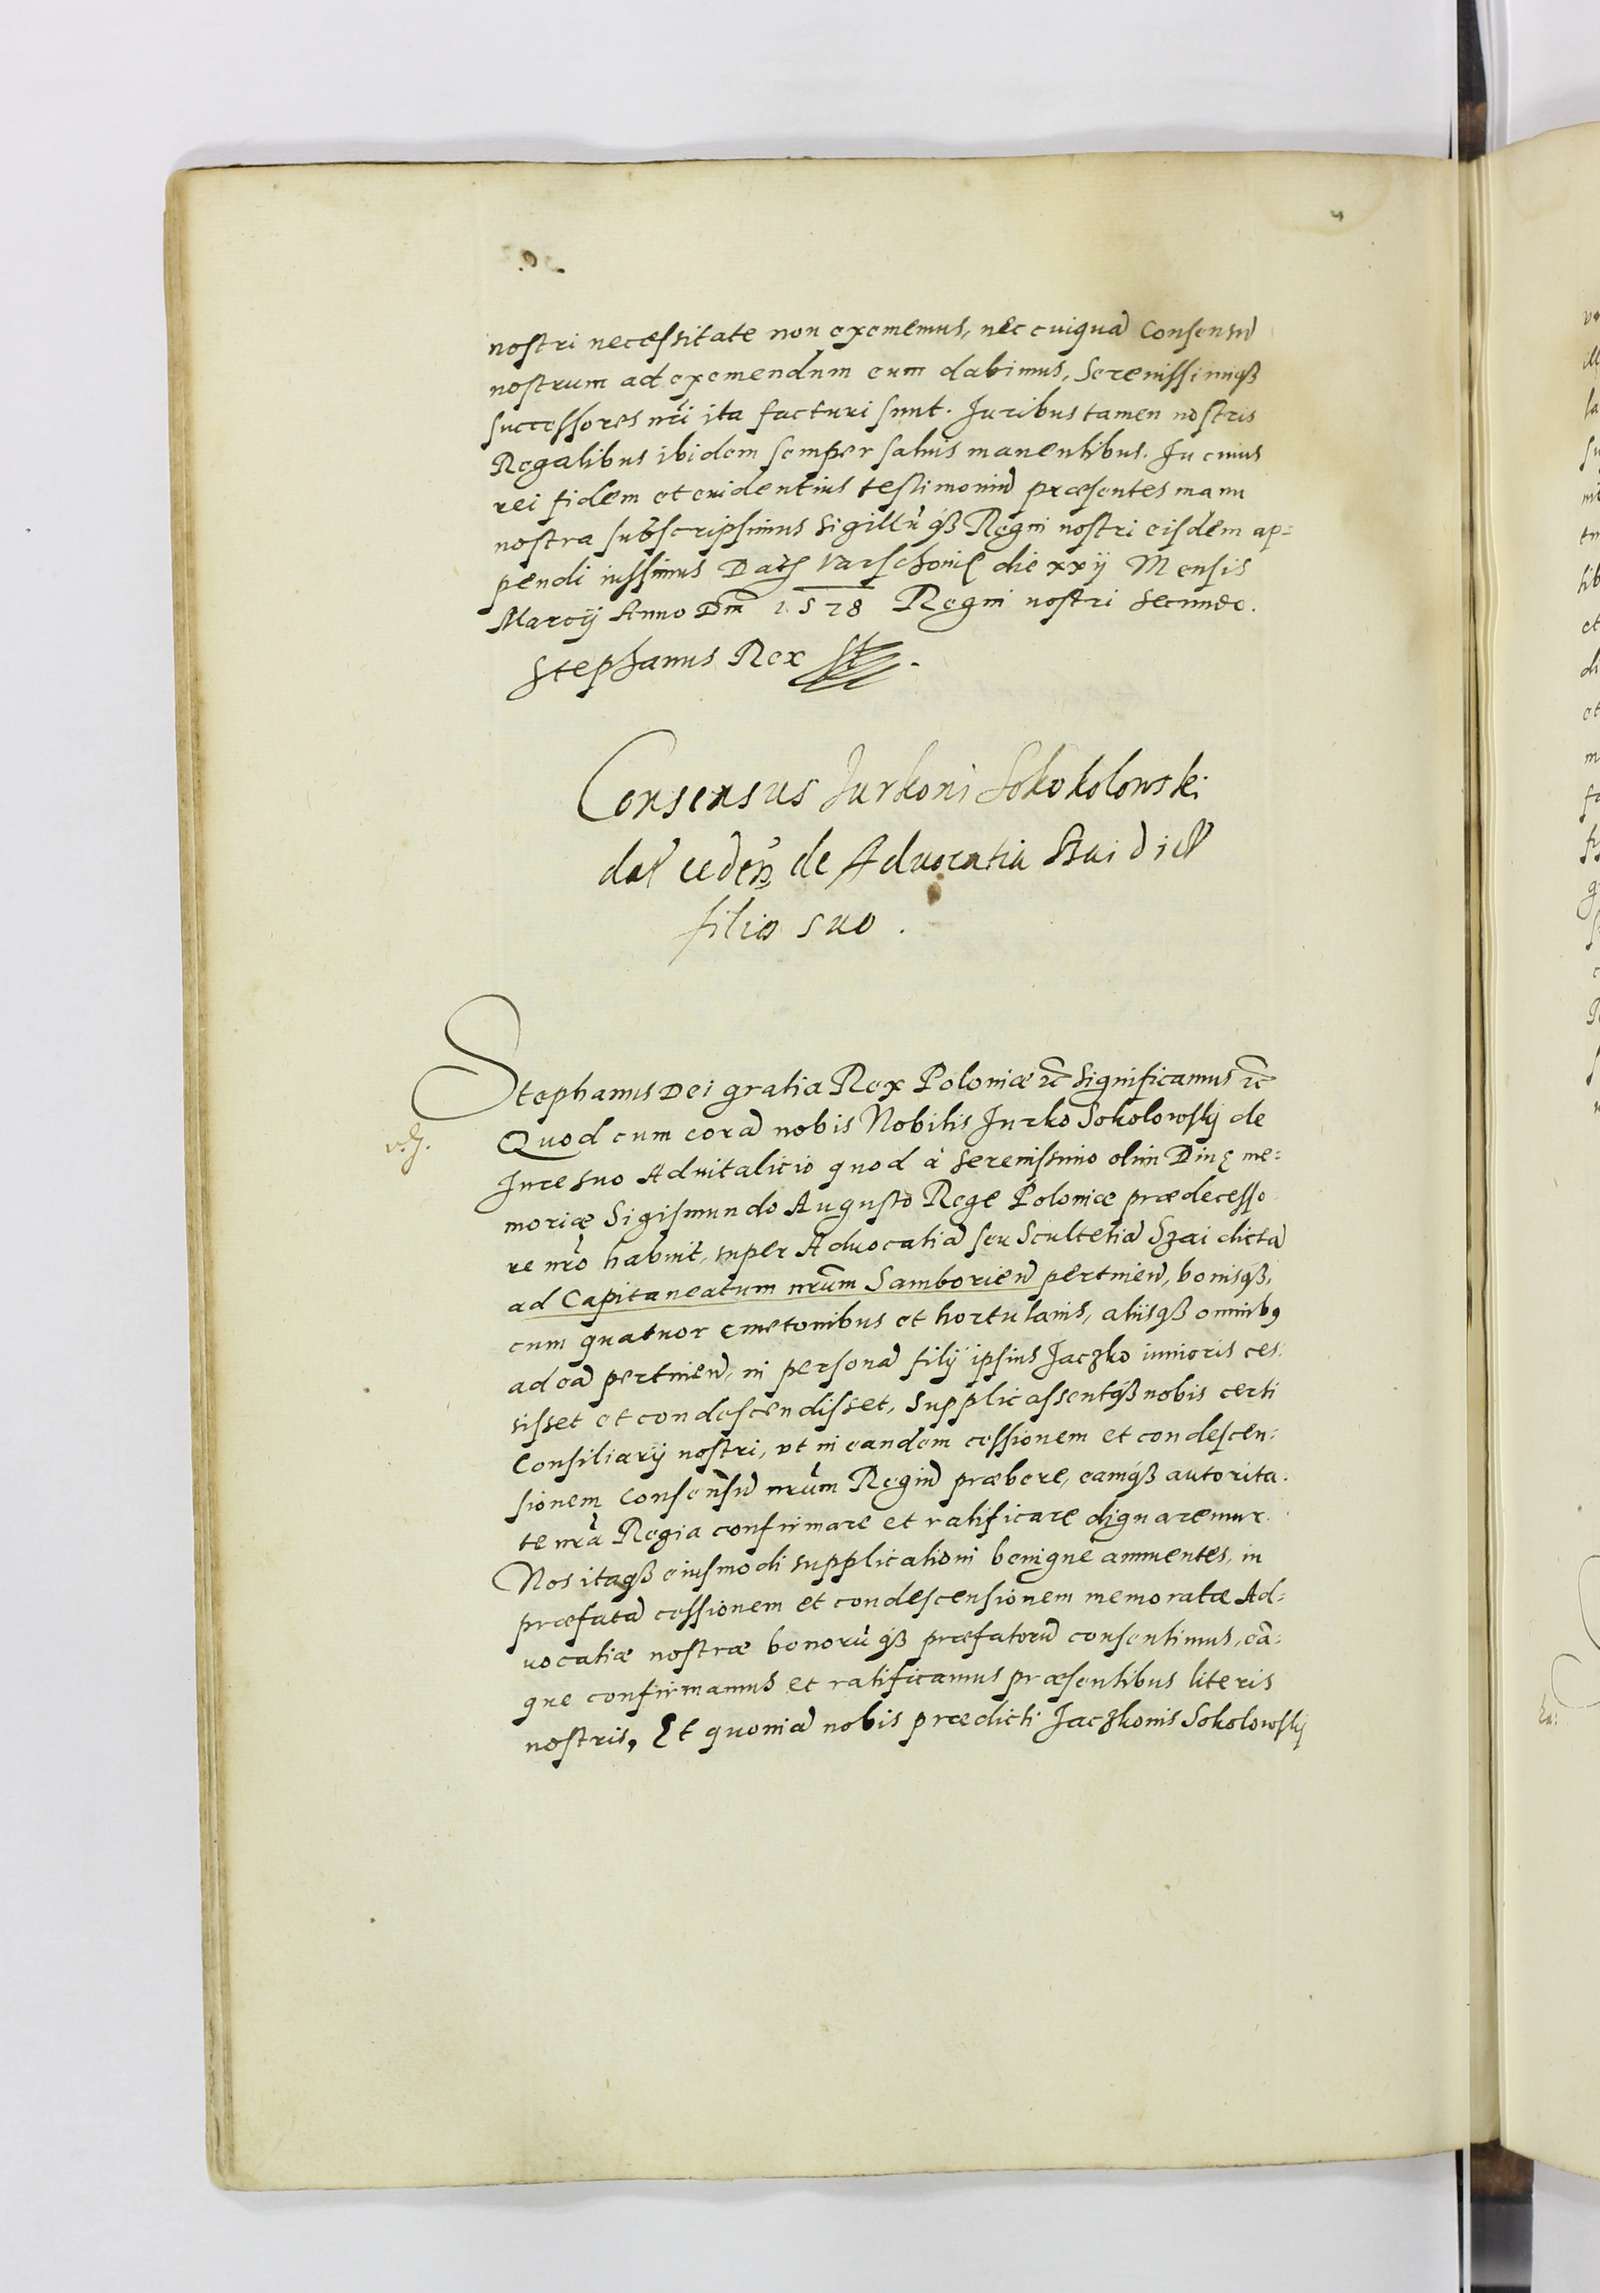 nostri necessitate non exememus, nec cuiquã Consensũ
nostrum ad exemendum eum dabimus, Serenissimiqß
successores nr̃i ita facturi sunt. Juribus tamen nostris
Regalibus ibidem semper salvis manentibus. In cuius
rei fidem et evidentius testimoniũ præsentes manu
nostra subscripsimus Sigillũ qß Regni nostri eisdem ap=
pendi iussimus Datę Varschovię die xxij Mensis
Marcij Anno Dm̃ 1578 Regni nostri Secundo.
Stephanus Rex
Consensus Jurkoni Sokokolowski
dat͛ cedeñ de Advocatia Szai dict͛
filio suo.
Stephanus Dei gratia Rex Poloniæ ɿc̃ Significamus ɿc̃
Quod cum corã nobis Nobilis Jurko Sokolowskij de
Jure suo Advitalicio quod à Serenissimo olim Diuę me=
moriæ Sigismundo Augusto Rege Poloniæ prædecesso
re nr̃o habuit, super Advocatiã seu Scultetiã Szai dictã
ad Capitaneatum nr̃um Samborieñ pertineñ, bonisqß,
cum quatuor cmetonibus et hortulanis, aliisqß omnibꝯ
ad eã pertineñ, in personã filij ipsius Jaczko iunioris ces:
sisset et condescendisset, Supplicassentqß nobis certi
Consiliarij nostri, vt in eandem cessionem et condescen:
sionem Consensũ nr̃um Regiũ præbere, eamqß autorita.
te nr̃a Regia confirmare et ratificare dignaremur.
Nos itaqß eiusmodi supplicationi benigne annuentes, in
præfatã cessionem et condescensionem memoratæ Ad=
uocatiæ nostræ bonorũ qß præfatorũ consentimus, eã=
que confirmamus et ratificamus præsentibus literis
nostris, Et quoniã nobis prædicti Jaczkonis Sokolowskij